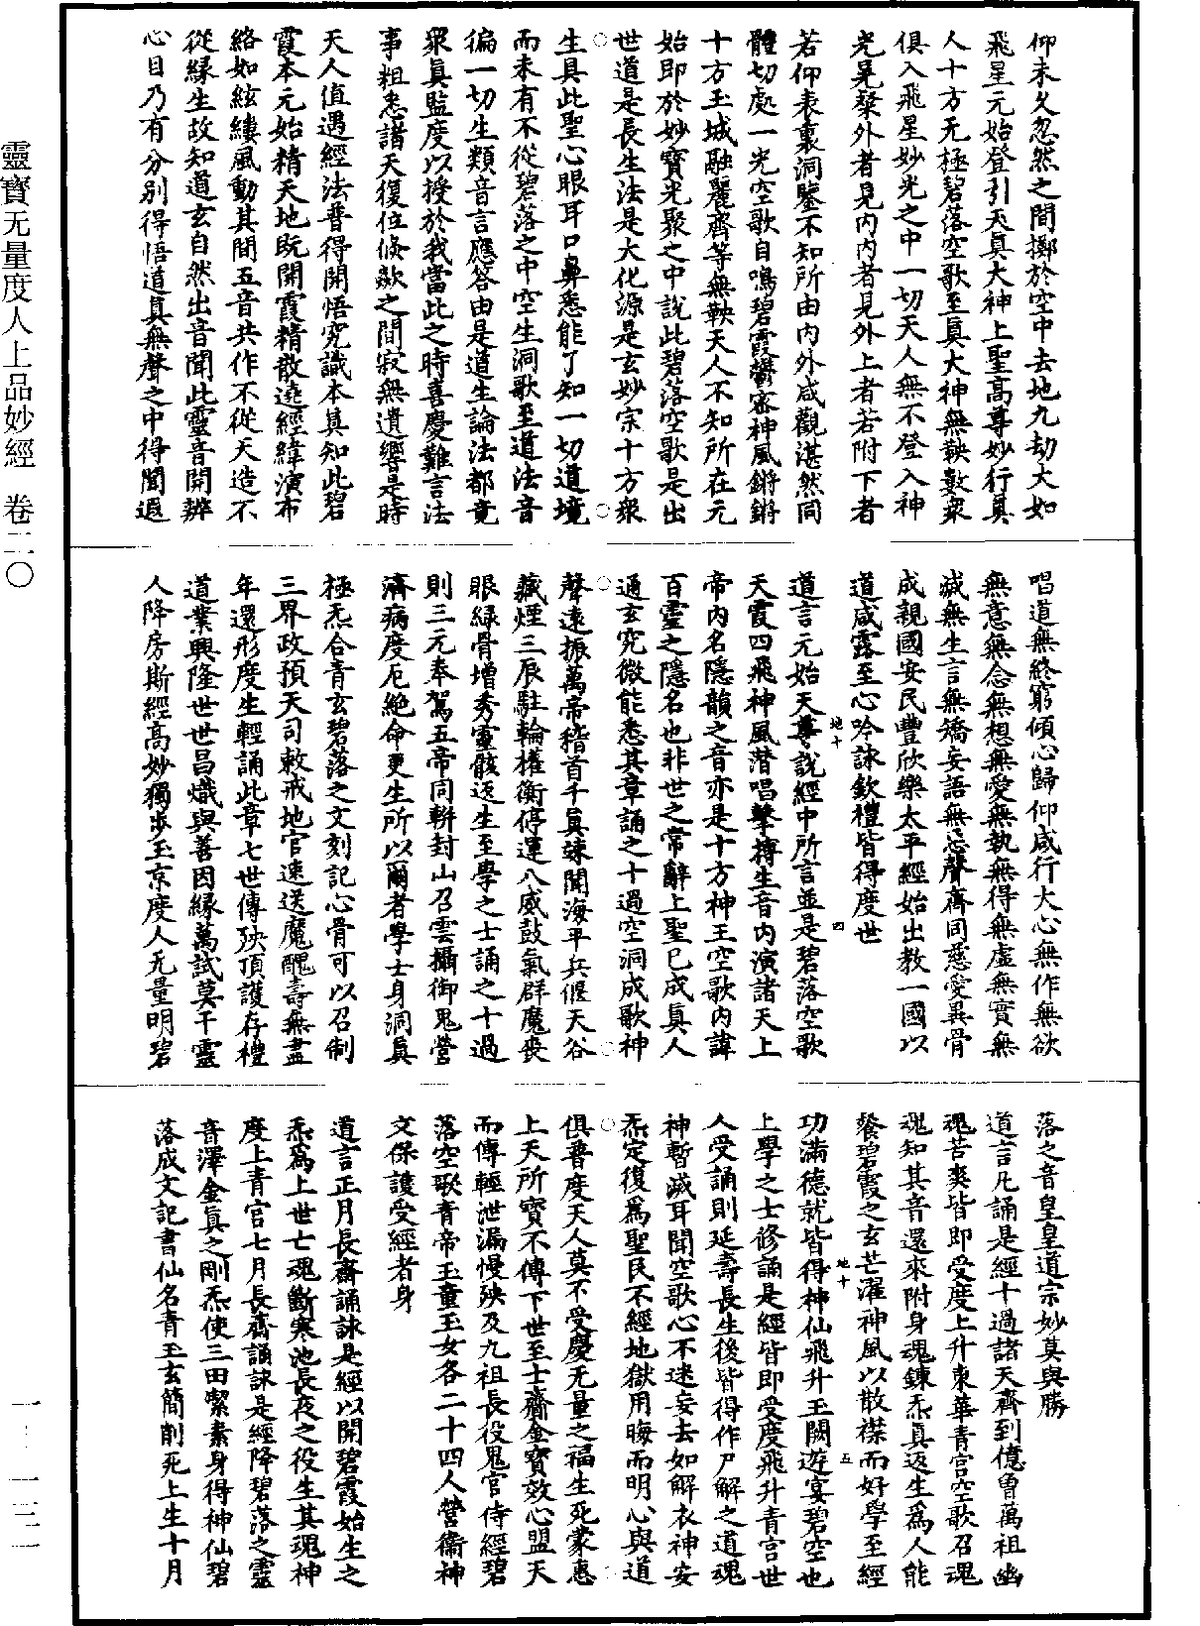 靈寶无量度人上品妙經　卷二〇
一—一三二
仰未久忽然之間擲於空中去地九劫大如
飛星元始登引天眞大神上聖高尊妙行眞
人十方无極碧落空歌至眞大神無鞅數衆
俱入飛星妙光之中一切天人無不登入神
光晃粲外者見內內者見外上者若附下者
若仰表裏洞鑒不知所由內外咸觀湛然同
體切處一光空歌自鳴碧霞鬱密神風鏘鏘
十方玉城融麗齊等無鞅天人不知所在元
始即於妙寶光聚之中說此碧落空歌是出
世道是長生法是大化源是玄妙宗十方衆
生具此聖心眼耳口鼻悉能了知一切道境
而未有不從碧落之中空生洞歌至道法音
徧一切生類音言應答由是道生論法都竟
衆眞監度以授於我當此之時喜慶難言法
事粗悉諸天復位倏歘之間寂無遺響是時
天人值遇經法普得開悟究識本眞知此碧
霞本元始精天地既開霞精散遶經緯演布
絡如絃縷風動其間五音共作不從天造不
從緣生故知道玄自然出音聞此靈音開辨
心目乃有分別得悟道眞無聲之中得聞遐
唱道無終窮傾心歸仰咸行大心無作無欲
無意無念無想無愛無執無得無虛無實無
滅無生言無矯妄語無忘聲齊同慈愛異骨
成親國安民豐欣樂太平經始出教一國以
道咸露至心吟詠欽禮皆得度世
地十　四
道言元始天尊說經中所言並是碧落空歌
天霞四飛神風潛唱擊摶生音內演諸天上
帝內名隱韻之音亦是十方神王空歌內諱
百靈之隱名也非世之常辭上聖已成眞人
通玄究微能悉其章誦之十過空洞成歌神
聲遠振萬帝稽首千眞竦聞海平兵偃天谷
藏煙三辰駐輪權衡停運八威鼓氣群魔喪
眼綠骨增秀靈骸返生至學之士誦之十過
則三元奉駕五帝同軿封山召雲攝御鬼營
濟病度厄絶命更生所以爾者學士身洞眞
極炁合青玄碧落之文刻記心骨可以召制
三界政預天司敕戒地官速送魔醜壽無盡
年還形度生輕誦此章七世傳殃頂護存禮
道業興隆世世昌熾與善因緣萬試莫干靈
人降房斯經高妙獨步玉京度人无量明碧
落之音皇皇道宗妙莫與勝
道言凡誦是經十過諸天齊到億曾萬祖幽
魂苦爽皆即受度上升東華青宫空歌召魂
魂知其音還來附身魂鍊炁眞返生爲人能
餐碧霞之玄芒濯神風以散襟而好學至經
功滿德就皆得神仙飛升玉闕遊宴碧空也
地十　五
上學之士修誦是經皆即受度飛升青宫世
人受誦則延壽長生後皆得作尸解之道魂
神暫滅耳聞空歌心不迷妄去如解衣神安
炁定復爲聖民不經地獄用晦而明心與道
俱普度天人莫不受慶无量之福生死蒙惠
上天所寶不傳下世至士齎金寶效心盟天
而傳輕泄漏慢殃及九祖長役鬼官侍經碧
落空歌青帝玉童玉女各二十四人營衞神
文保護受經者身
道言正月長齋誦詠是經以開碧霞始生之
炁爲上世亡魂斷寒池長夜之役生其魂神
度上青宫七月長齋誦詠是經降碧落之靈
音澤金眞之剛炁使三田潔素身得神仙碧
落成文記書仙名青玉玄簡削死上生十月